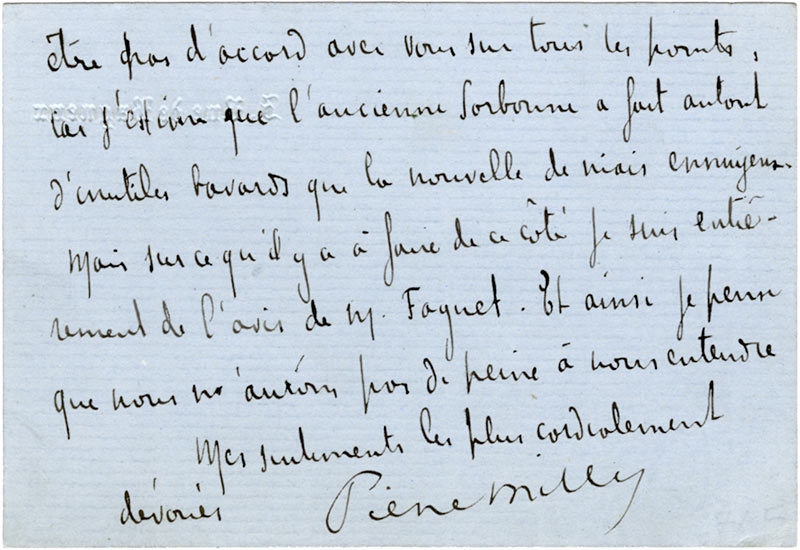 être pas d'accord avec vous sur tous les points,
car j'estime que l'ancienne Sorbonne a fait autant
d'inutiles bavards que la nouvelle de niais ennuyeux.
Mais sur ce qu'il y a à faire de ce côté je suis entiè-
rement de l'avis de M. Faguet. Et ainsi je pense
que nous n'aurons pas de peine à nous entendre
Mes sentiments les plus cordialement
dévoués Pierre Mille